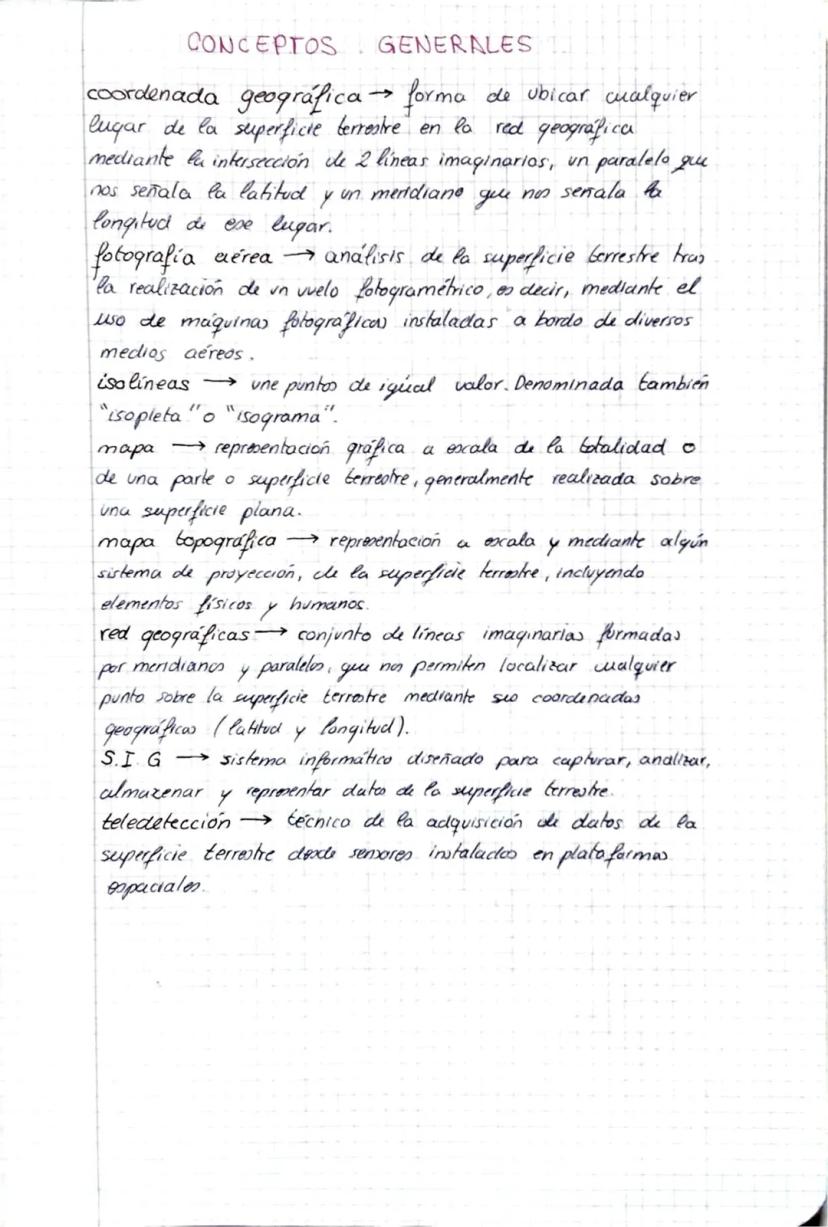 CONCEPTOS GENERALES
coordenada geográfica → forma de ubicar cualquier
lugar de la superficie terrestre en la red geográfica
mediante la intersección de 2 líneas imaginarios, un paralelo que
nos señala la latitud y un meridiano que nos señala la
longitud de ese lugar.
fotografía aérea → análisis de la superficie terrestre tras
la realización de un vuelo fotogramétrico, es decir, mediante el
uso de máquinas fotográficas instaladas a bordo de diversos
medios aéreos.
isolíneas → une puntos de igual valor. Denominada también
"isopleta" o "isograma".
mapa → representación gráfica a escala de la totalidad o
de una parte o superficie terrestre, generalmente realizada sobre
una superficie plana.
mapa topográfica → representación a escala y mediante algún
sistema de proyección, de la superficie terrestre, incluyendo
elementos físicos y humanos.
red geográficas → conjunto de líneas imaginarias formadas
por meridianos y paralelos, que nos permiten localizar cualquier
punto sobre la superficie terrestre mediante sus coordenadas
geográficas (latitud y longitud).
S.I.G → sistema informático diseñado para capturar, analizar,
almazenar y representar datos de la superficie terrestre.
teledetección → técnico de la adquisición de datos de la
superficie terrestre desde sensores instalados en plataformas
espaciales.